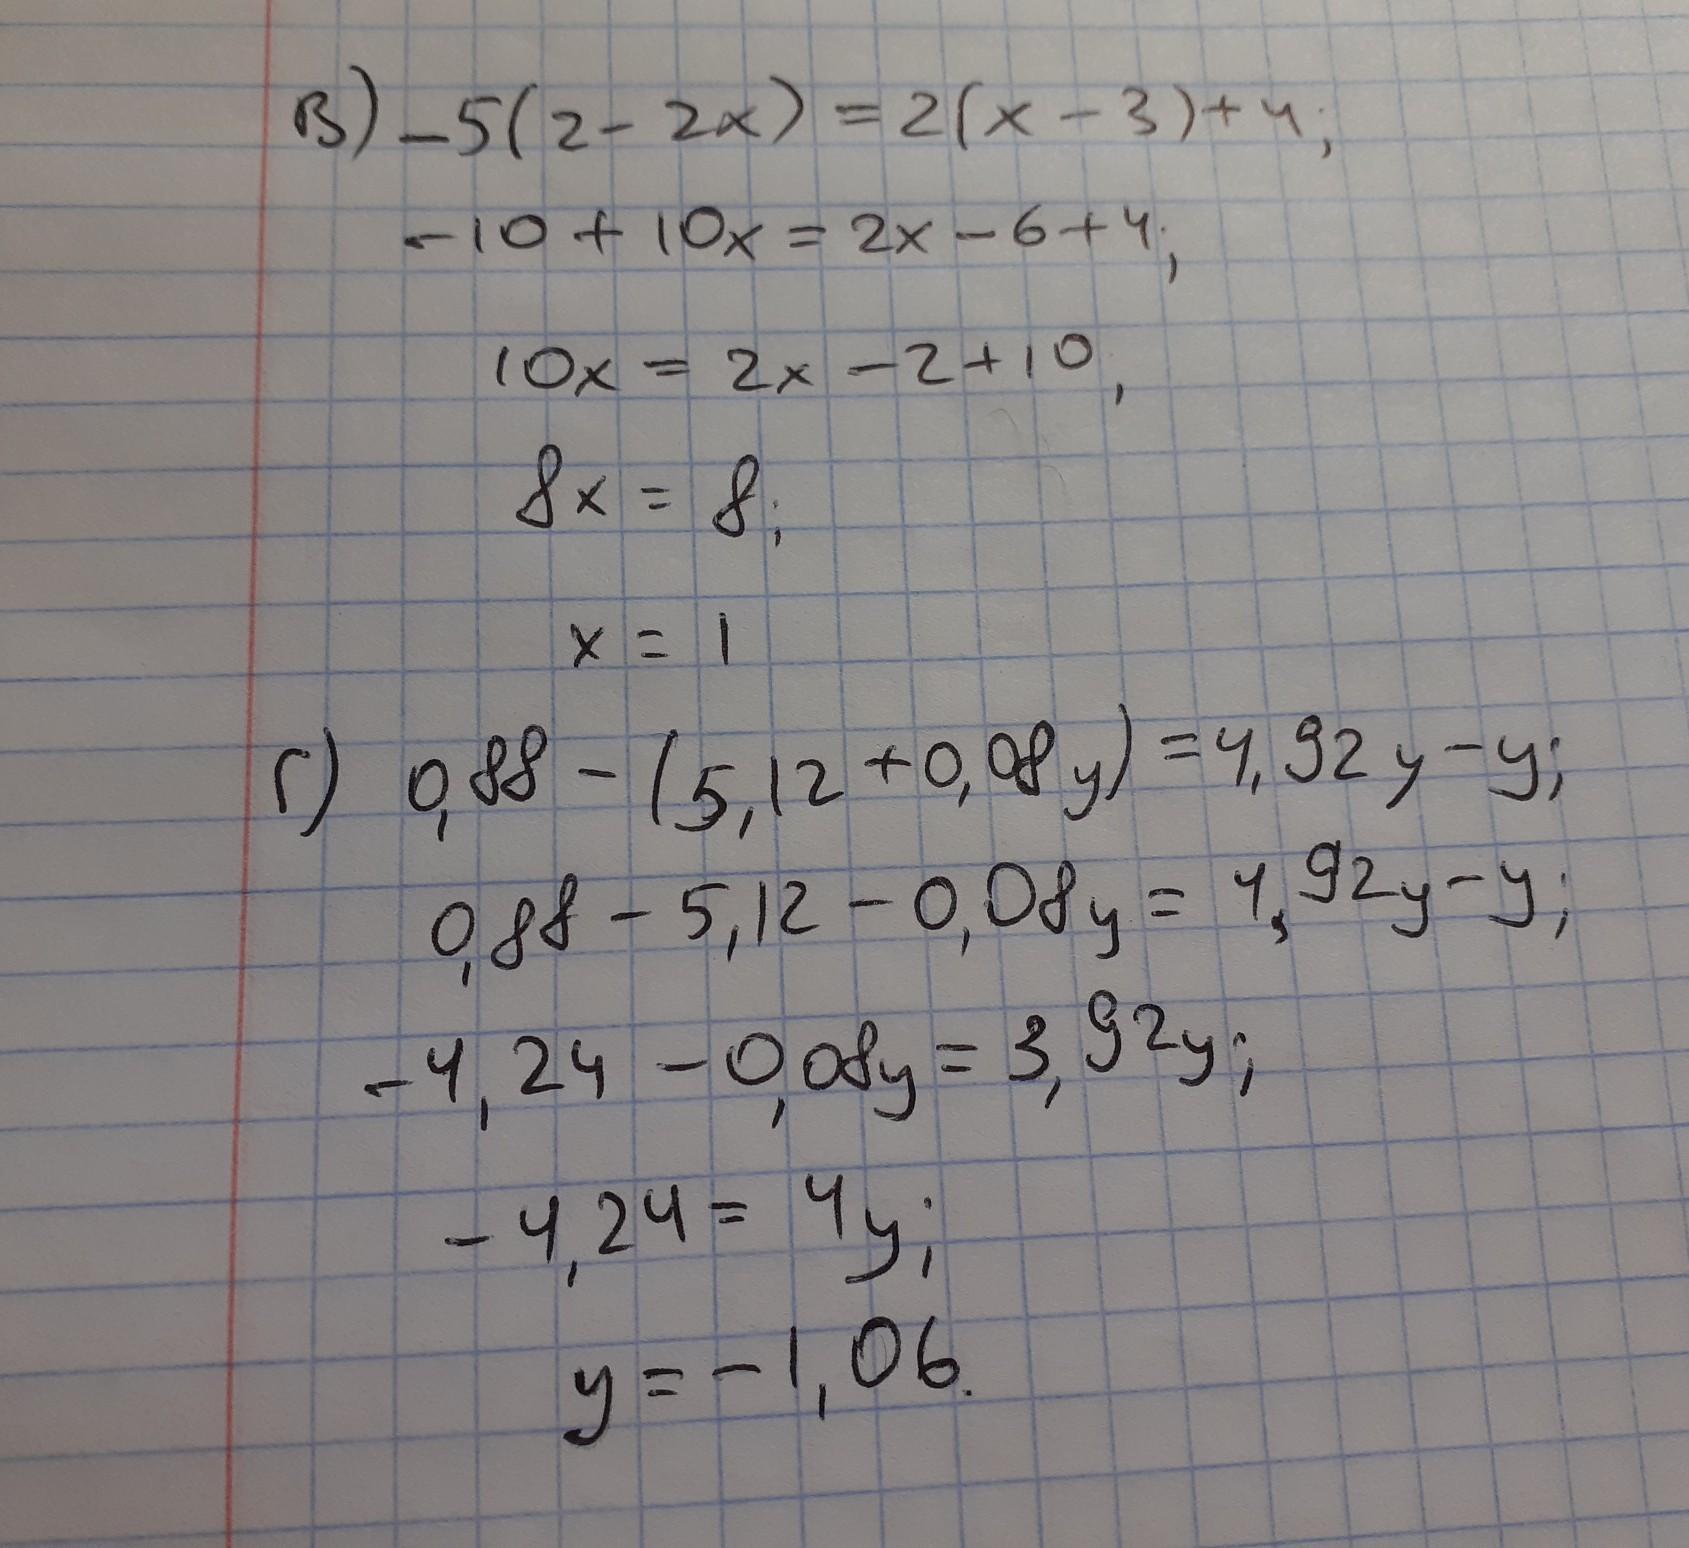 в) -5(2-2x)=2(x-3)+4;
-10+10x=2x-6+4;
10x=2x-2+10,
8x=8;
x=1
г) 0,88-(5,12+0,08y)=4,92y-y;
0,88-5,12-0,08y=4,92y-y;
-4,24-0,08y=3,92y;
-4,24=4y;
y=-1,06.